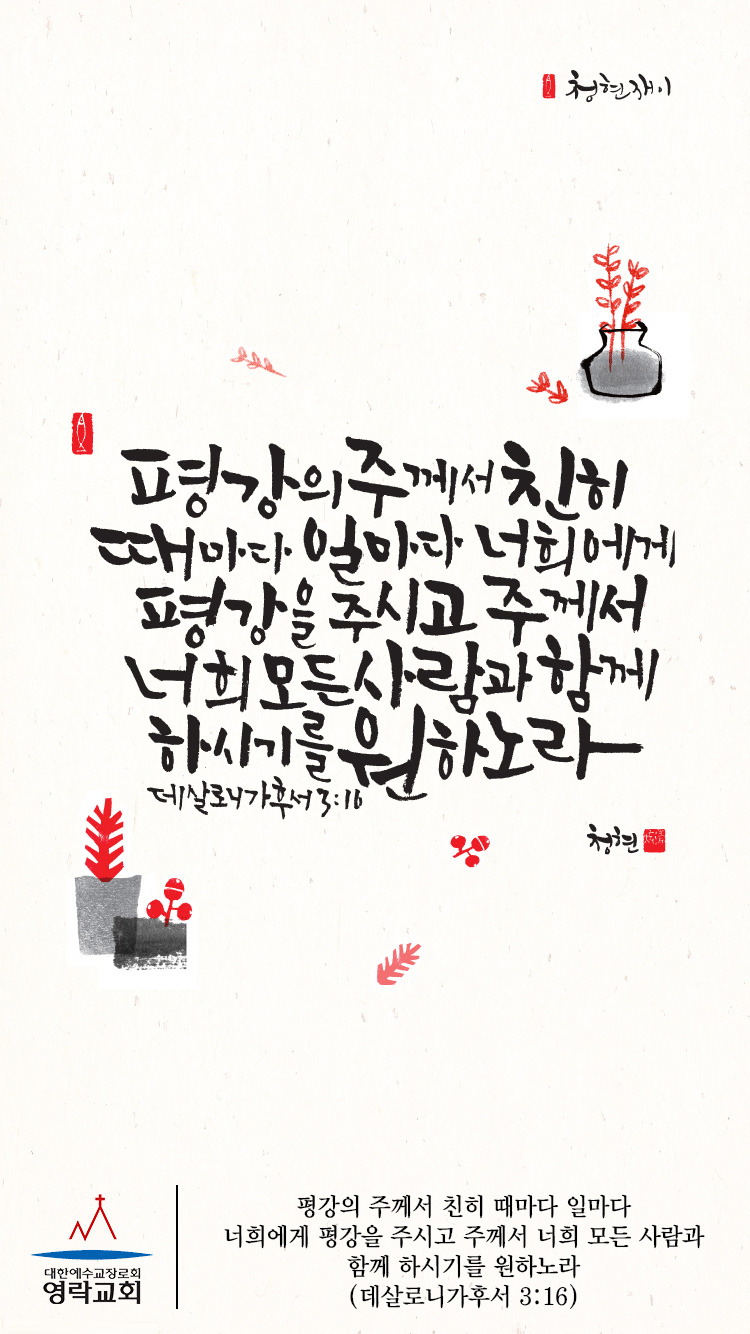 청현재이
평강의 주께서 친히
때마다 일마다 너희에게
평강을 주시고 주께서
너희 모든 사람과 함께
하시기를 원하노라
데살로니가후서 3:16
청현
대한예수교장로회
영락교회
평강의 주께서 친히 때마다 일마다
너희에게 평강을 주시고 주께서 너희 모든 사람과
함께 하시기를 원하노라
(데살로니가후서 3:16)